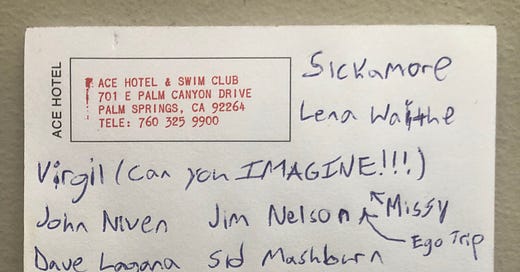 ACE HOTEL
ACE HOTEL & SWIM CLUB
701 E PALM CANYON DRIVE
PALM SPRINGS, CA 92264
TELE: 760 325 9900
Sickamore
Lena Waithe
Virgil (Can you IMAGINE!!!)
John Niven Jim Nelson Missy
Ego Trip
Dave Lagana Sid Mashburn